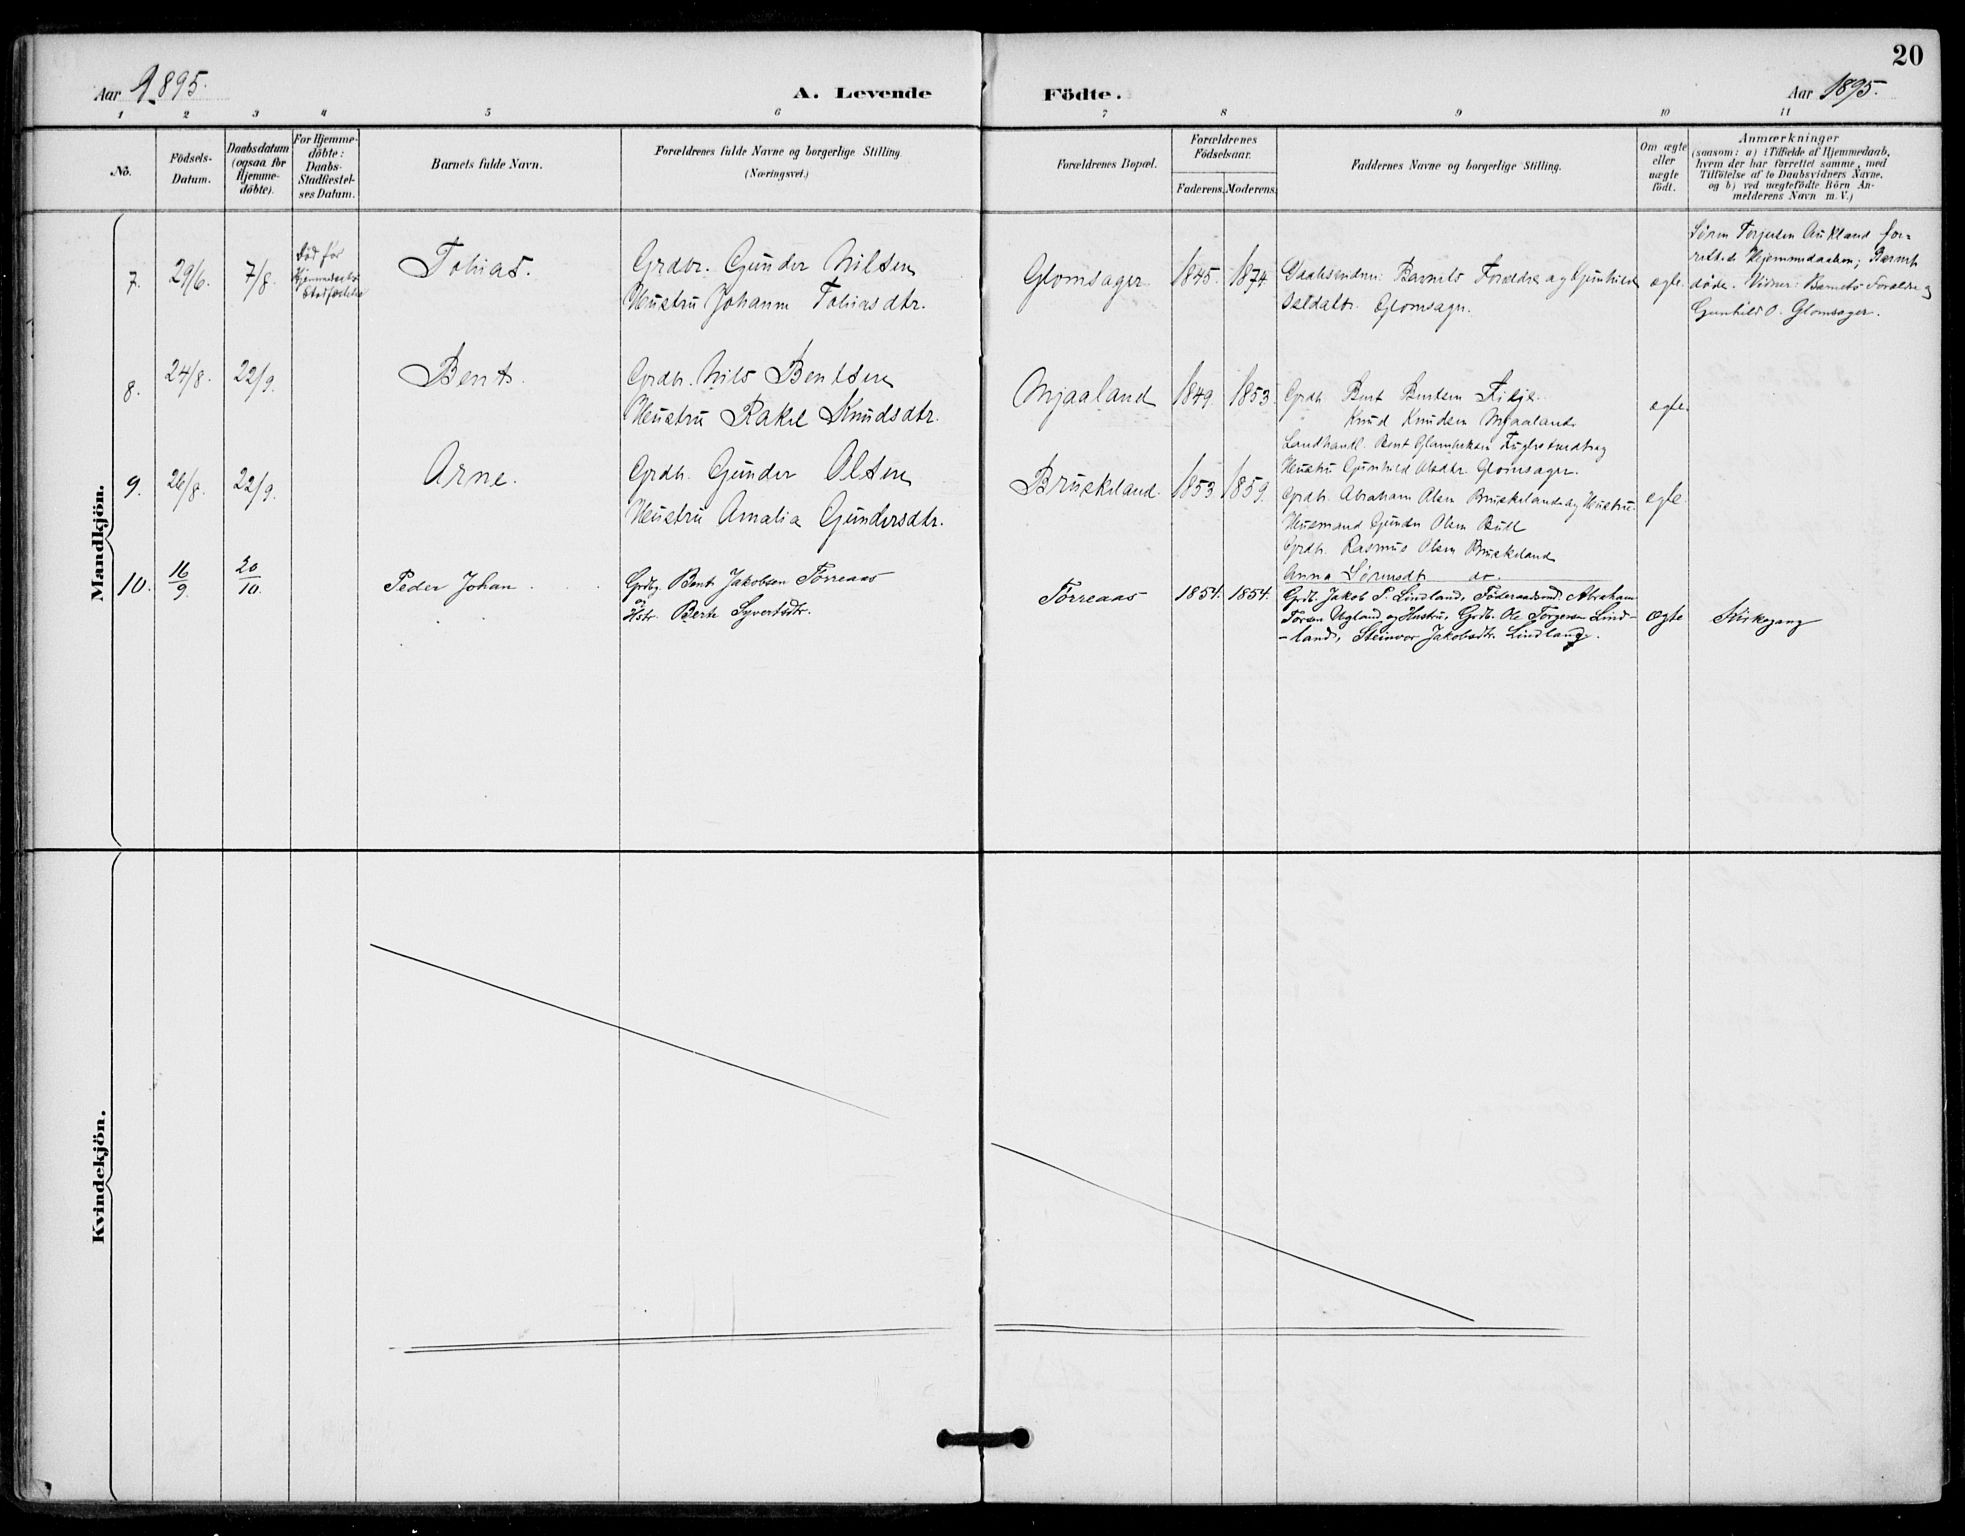 20
Aar 1895.
A. Levende Födte.
Aar 1895.
1 2 3 4 5 6 7 8 9 10 11
No.
Födsels-Datum.
Daabsdatum (ogsaa for Hjemme-döbte).
For Hjemme-döbte: Daabs-Stadfæstel-ses Datum.
Barnets fulde Navn.
Forældrenes fulde Navne og borgerlige Stilling.
(Næringsvei.)
Forældrenes Bopæl.
Forældrenes Födselsaar.
Faderens. Moderens.
Faddernes Navne og borgerlige Stilling.
Om ægte eller uægte födt.
Anmærkninger
(saasom: a) i Tilfælde af Hjemmedaab,
hvem der har forrettet samme, med
Tilföielse af to Daabsvidners Navne,
og b) ved uægtefödte Börn An-
melderens Navn m. V.)
Mandkjön.
7. 29/6. 7/8.
Död før
Hjemmedaabs
Stadfæstelse
Tobias.
Grdbr. Gunder Nilsen
Hustru Johanne Tobiasdtr.
Glomsager 1845. 1874.
Daabsvidner: Barnets Forældre og Gunhild
Glomsager.
ægte.
Sören Terjesen Aukland for-
rettede Hjemmedaaben; Barnet
döde. Vidner: Barnets Forældre og
Gunhild O. Glomsager.
8. 24/8. 22/9.
Bent.
Grdb. Nils Bentsen
Hustru Rakel Knudsdtr.
Mjaaland 1849. 1853.
Grdb. Bent Bentsen
Knud Knudsen Mjaaland
Landhandl. Bent
Hustru Gunhild Olsdtr. Glomsager.
ægte.
9. 26/8. 22/9.
Arne.
Grdb. Gunder Olsen
Hustru Amalia Gundersdtr.
Bruskeland. 1853 1859.
Grdb. Abraham Olsen Bruskeland og Hustru.
Husmand Gunder Olsen
Grdb. Rasmus Olsen Bruskeland
Anna Sörensdt. do.
ægte
10. 16/9 20/10.
Peder Johan
Grdbg. Bent Jakobsen Torreaas
og
Hstr. Berte Syvertsdtr.
Torreaas 1854. 1854.
Grdb. Jakob P. Lindland, Föderaadsmd. Abraham
Torsen Ugland og Hustru, Grdb. Ole Torgersen Lind-
-land, Steinvor Jakobsdtr. Lindland.
ægte
Kirkegang
Kvindekjön.